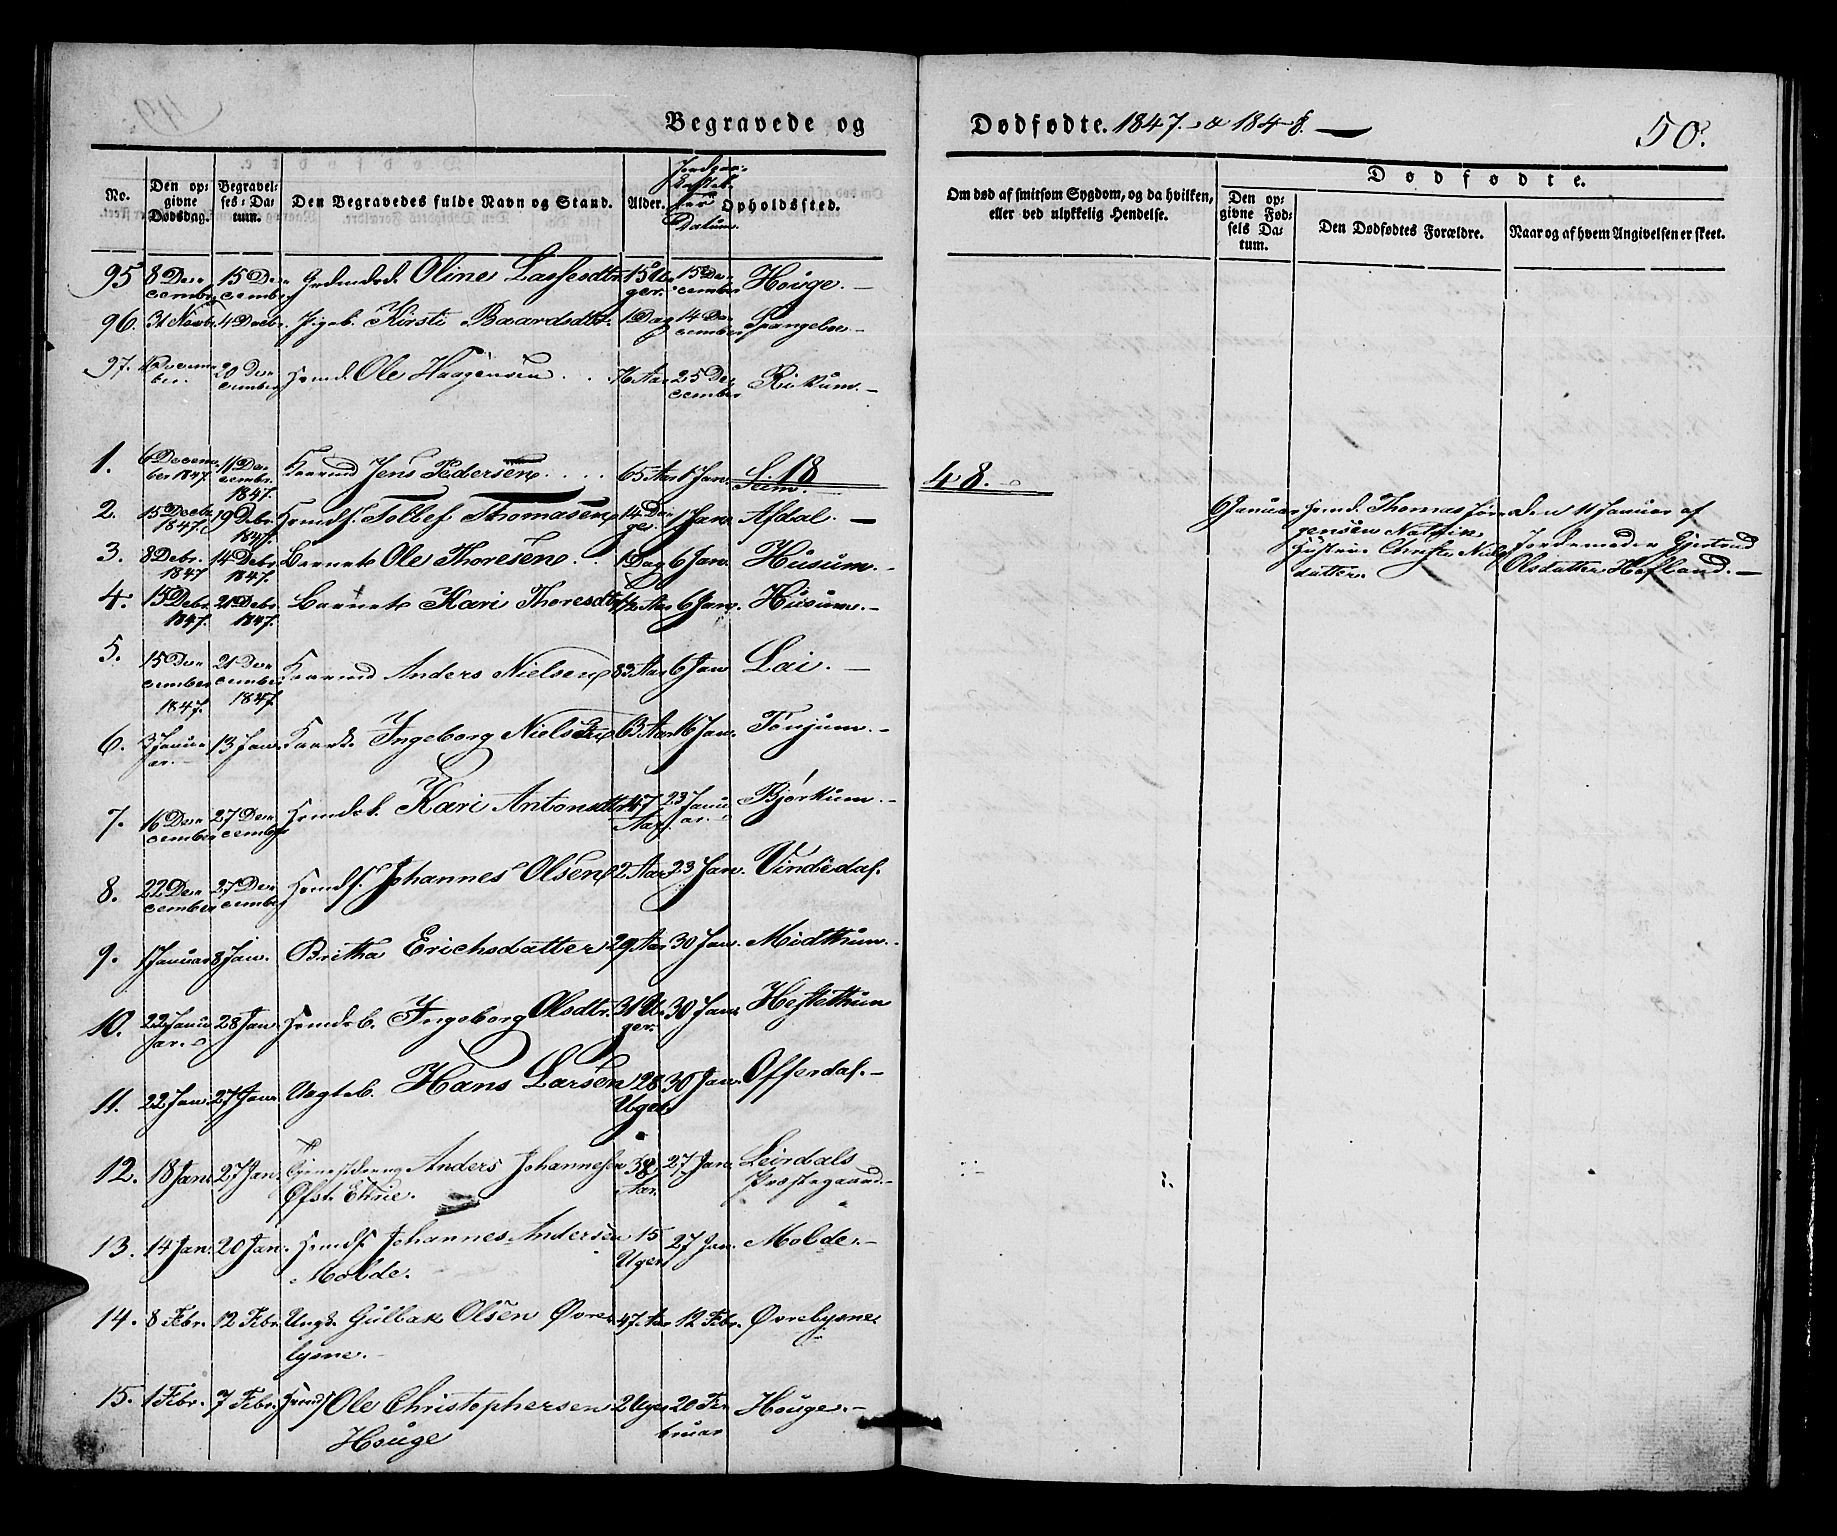 Begravede og
Dødfødte. 1847. & 1848.
50.
No.
Den opgivne Dødsdag.
Begravelses-Datum.
Den Begravedes fulde Navn og Stand.
Alder.
Jordpaakastelsens Datum.
Opholdssted.
Om død af smitsom Sygdom, og da hvilken,
eller ved ulykkelig Hendelse.
Dødfødte.
Den opgivne Fødsels Datum.
Den Dødfødtes Forældre.
Naar og af hvem Angivelsen er skeet.
95 8 December 15 December Oline Lassesdtr. 15 Uger. 15 December Houge.
96. 31 Novbr. 4 Decbr. Pigeb. Kirsti Baardsdtr. 1 Dag 14 December Spangeloe
97. December. 20 December Ole Haagensen 76 Aar 25 December Rikum.
1848.
1. 6 December 1847. 11 Decembr. 1847. Jens Pedersen 65 Aar 1 Jan. Seim.
2. 15 Decbr. 1847. 19 Debr. 1847. Tollef Thomasen 14 Dages. 1 Jan. Afdal.
3. 8 Debr. 1847 14 Debr. 1847. Barnet Ole Thoresen 1 Dag 6 Jan. Husum.
4. 15 Debr. 1847. 21 Debr. 1847. Barnet Kari Thoresdtr. 1/2 Aar 6 Jan. Husum.
5. 15 December 1847. 21 December 1847. Anders Nielsen 83 Aar 6 Jan Lai.
6. 3 Januar. 13 Jan. Ingeborg Niels 63 Aar 16 Jan. Tønjum.
7. 16 December 27 December Kari Antonsdtr. 47 Aar. 23 Januar. Bjørkum.
8. 22 December 27 December Johannes Olsen 2 Aar 23 Jan. Vindedal.
9. 1 Januar 8 Jan. Britha Erichsdatter 29 Aar 30 Jan. Midthun.
10. 22 Januar. 28 Jan. Ingeborg Olsdtr. 31 Uger. 30 Jan. Hestethun
11. 22 Jan. 27 Jan. Hans Larsen 28 Uger 30 Jan. Offerdal.
12. 18 Jan. 27 Jan. Anders Johannesen 38 Aar. 27 Jan. Leirdals
Præstegaard
13. 14 Jan. 20 Jan. Johannes Andersen 15 Uger 27 Jan. Molde.
Molde.
14. 8 Febr. 12 Febr. Ungk. Gulbak Olsen Øvre 47 Aar 12 Febr. Øvrelysne
lysne.
15. 1 Febr. 7 Febr. Ole Christophersen 2 Uger 20 Februar Houge.
Houge
6 Januar Thomas Jørgensen
Christi Nilsdatter.
den 11 Januar af
Jordemoder Gjertrud
Olsdatter Hefland.